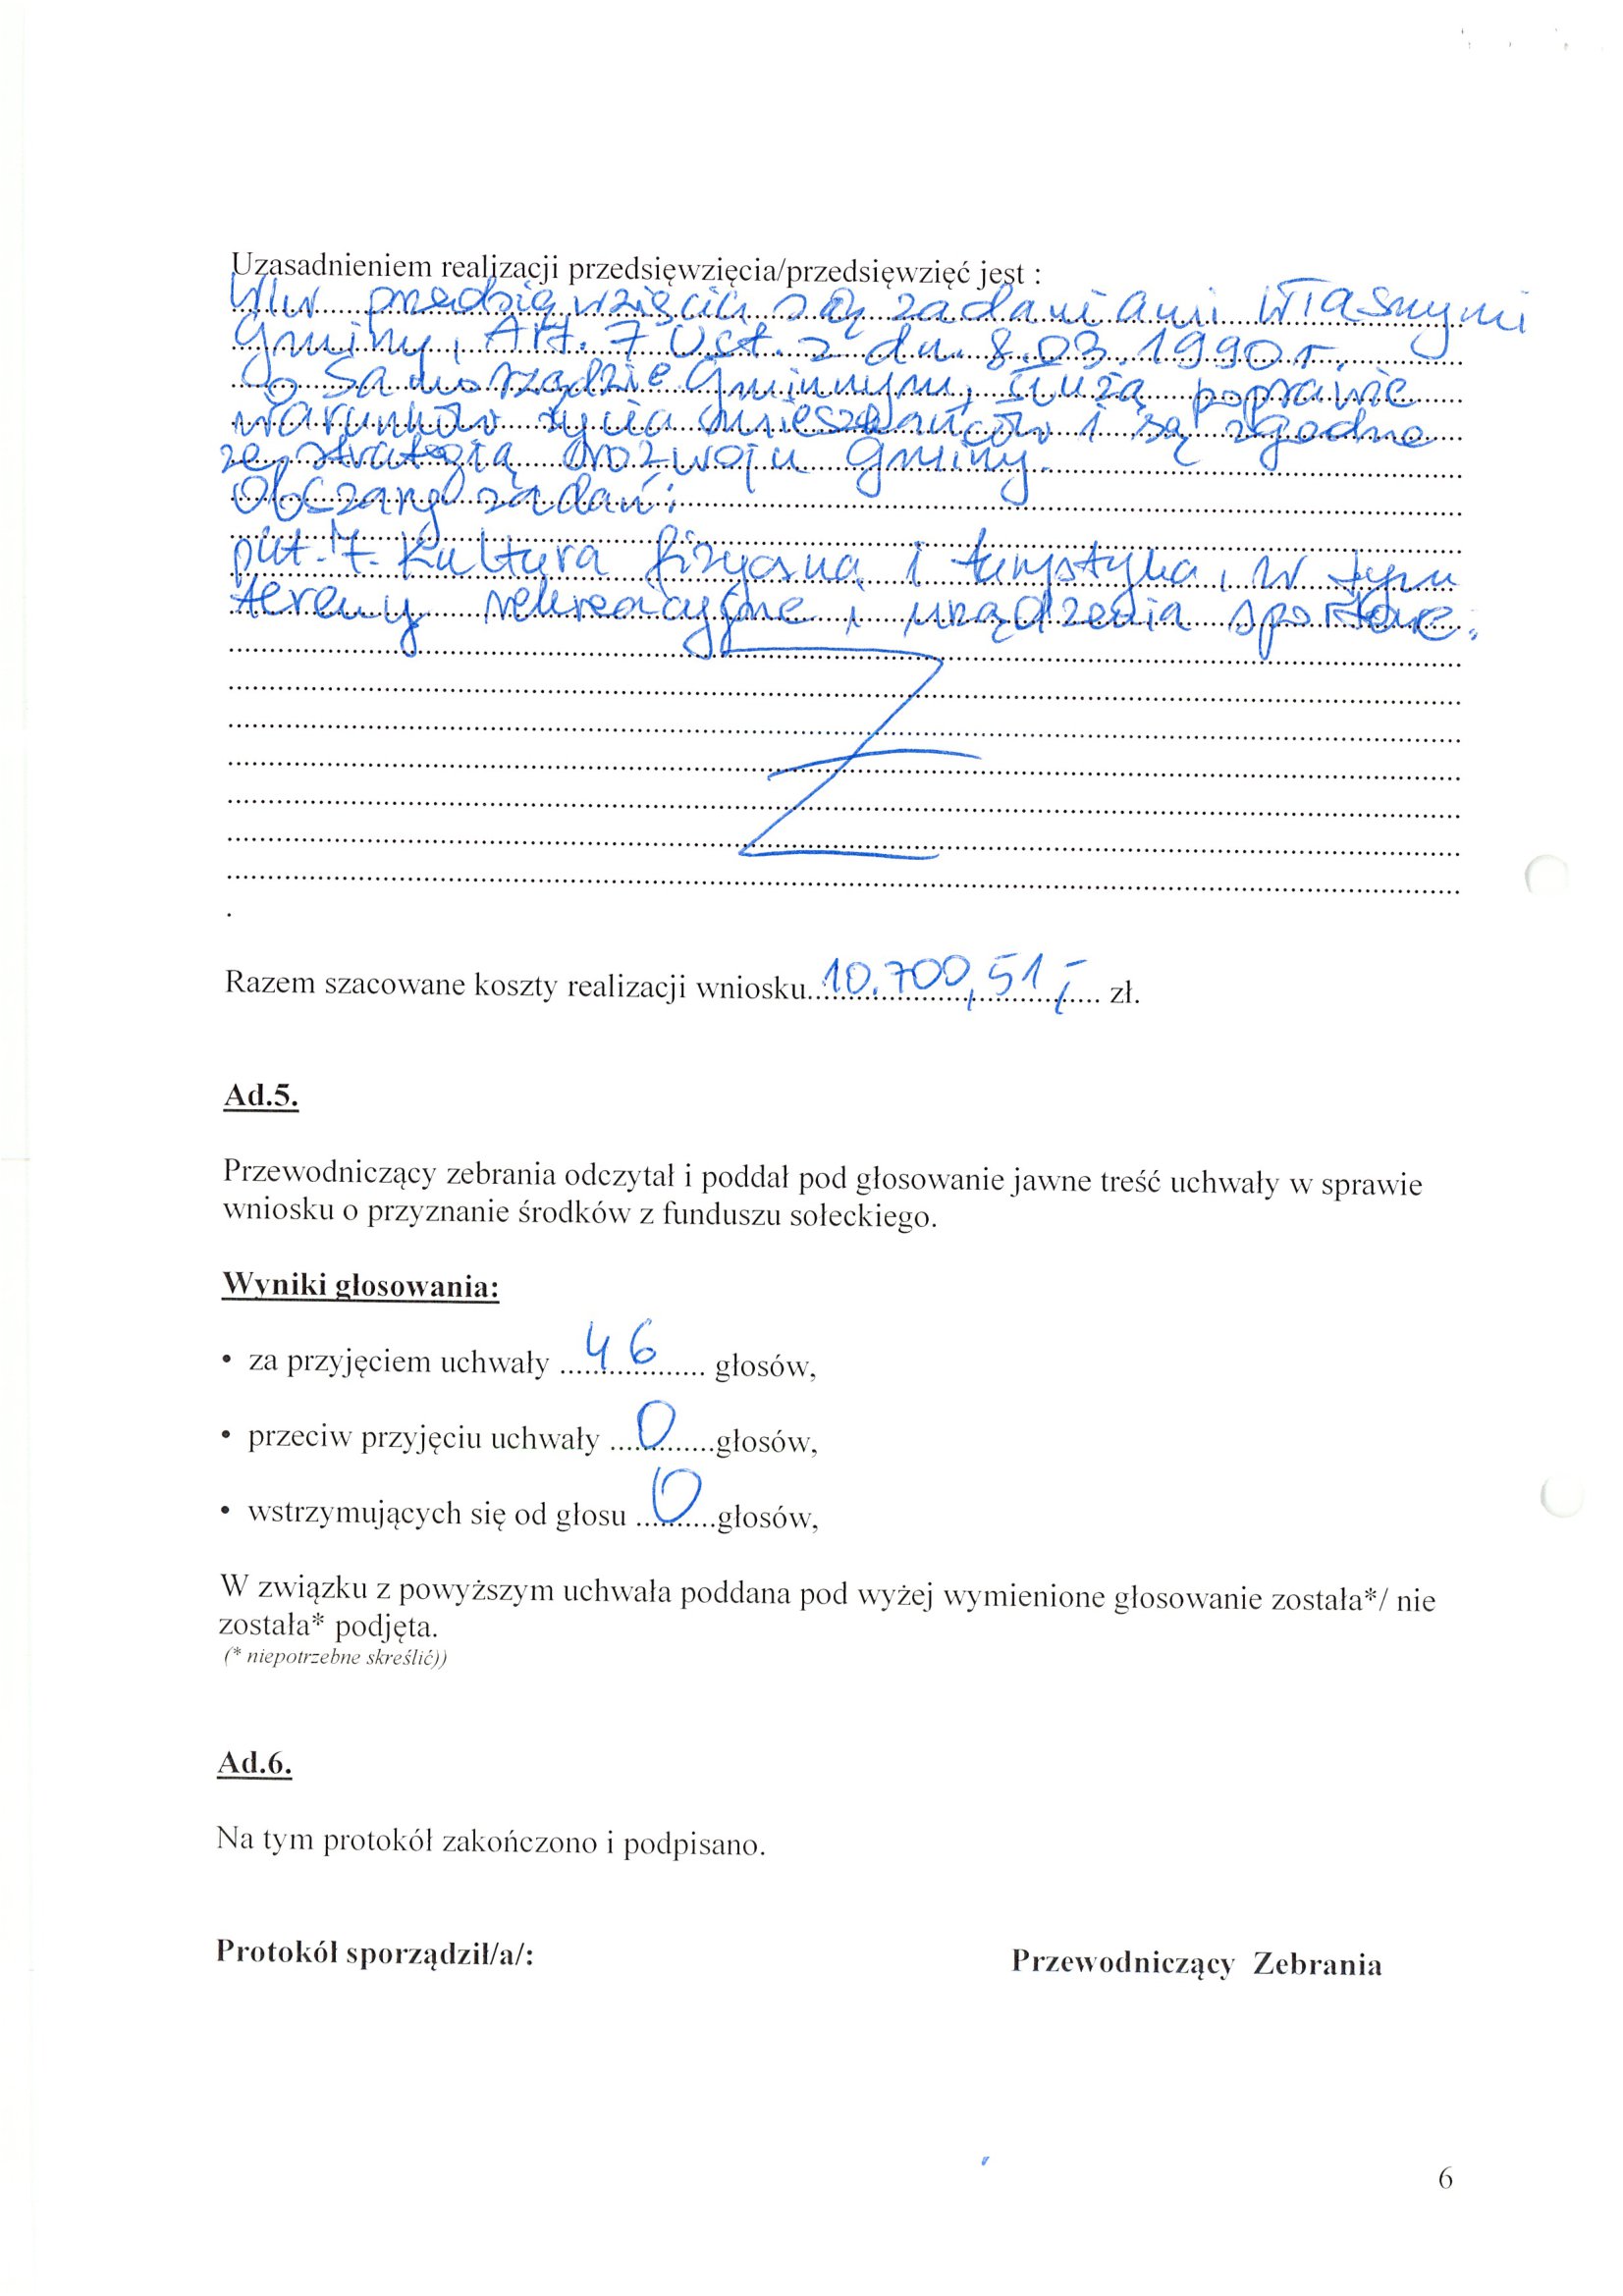 Uzasadnieniem realizacji przedsięwzięcia/przedsięwzięć jest :
W/w przedsięwzięcia są zadaniami własnymi
Gminy, Art. 7 Ust. z dn. 8.03.1990 r.
o Samorządzie Gminnym, służą poprawie
warunków życia mieszkańców i są zgodne
ze strategią rozwoju gminy.
Obszary zadań:
pkt. 7. Kultura fizyczna i turystyka, w tym
tereny rekreacyjne i urządzenia sportowe.
Razem szacowane koszty realizacji wniosku..10.700,51,-.... zł.
Ad.5.
Przewodniczący zebrania odczytał i poddał pod głosowanie jawne treść uchwały w sprawie
wniosku o przyznanie środków z funduszu sołeckiego.
Wyniki głosowania:
• za przyjęciem uchwały .....46....... głosów,
• przeciw przyjęciu uchwały ....0......głosów,
• wstrzymujących się od głosu ..0....głosów,
W związku z powyższym uchwała poddana pod wyżej wymienione głosowanie została*/ nie
została* podjęta.
(* niepotrzebne skreślić))
Ad.6.
Na tym protokół zakończono i podpisano.
Protokół sporządził/a/: Przewodniczący Zebrania
6